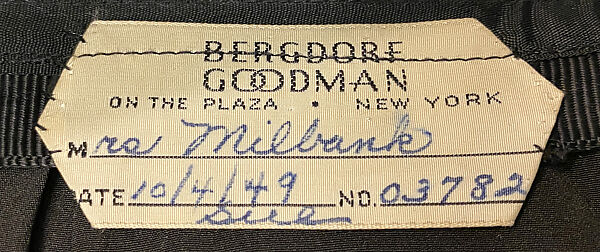 BERGDORF
GOODMAN
ON THE PLAZA • NEW YORK
Mrs Milbank
DATE 10/4/49 NO. 03782
Sue